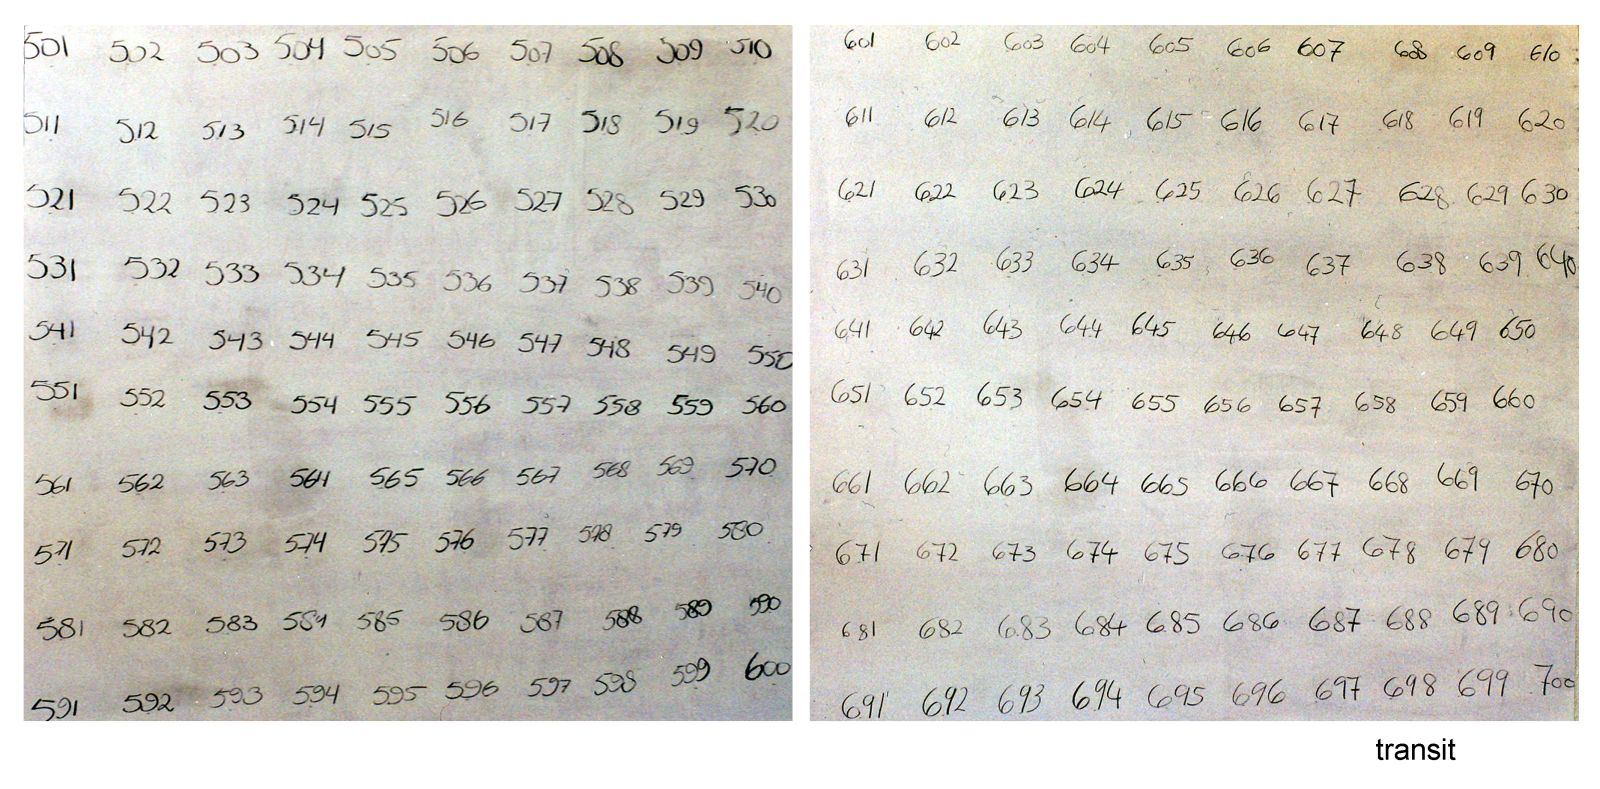 501 502 503 504 505 506 507 508 509 510
511 512 513 514 515 516 517 518 519 520
521 522 523 524 525 526 527 528 529 530
531 532 533 534 535 536 537 538 539 540
541 542 543 544 545 546 547 548 549 550
551 552 553 554 555 556 557 558 559 560
561 562 563 564 565 566 567 568 569 570
571 572 573 574 575 576 577 578 579 580
581 582 583 584 585 586 587 588 589 590
591 592 593 594 595 596 597 598 599 600
601 602 603 604 605 606 607 608 609 610
611 612 613 614 615 616 617 618 619 620
621 622 623 624 625 626 627 628 629 630
631 632 633 634 635 636 637 638 639 640
641 642 643 644 645 646 647 648 649 650
651 652 653 654 655 656 657 658 659 660
661 662 663 664 665 666 667 668 669 670
671 672 673 674 675 676 677 678 679 680
681 682 683 684 685 686 687 688 689 690
691 692 693 694 695 696 697 698 699 700
transit